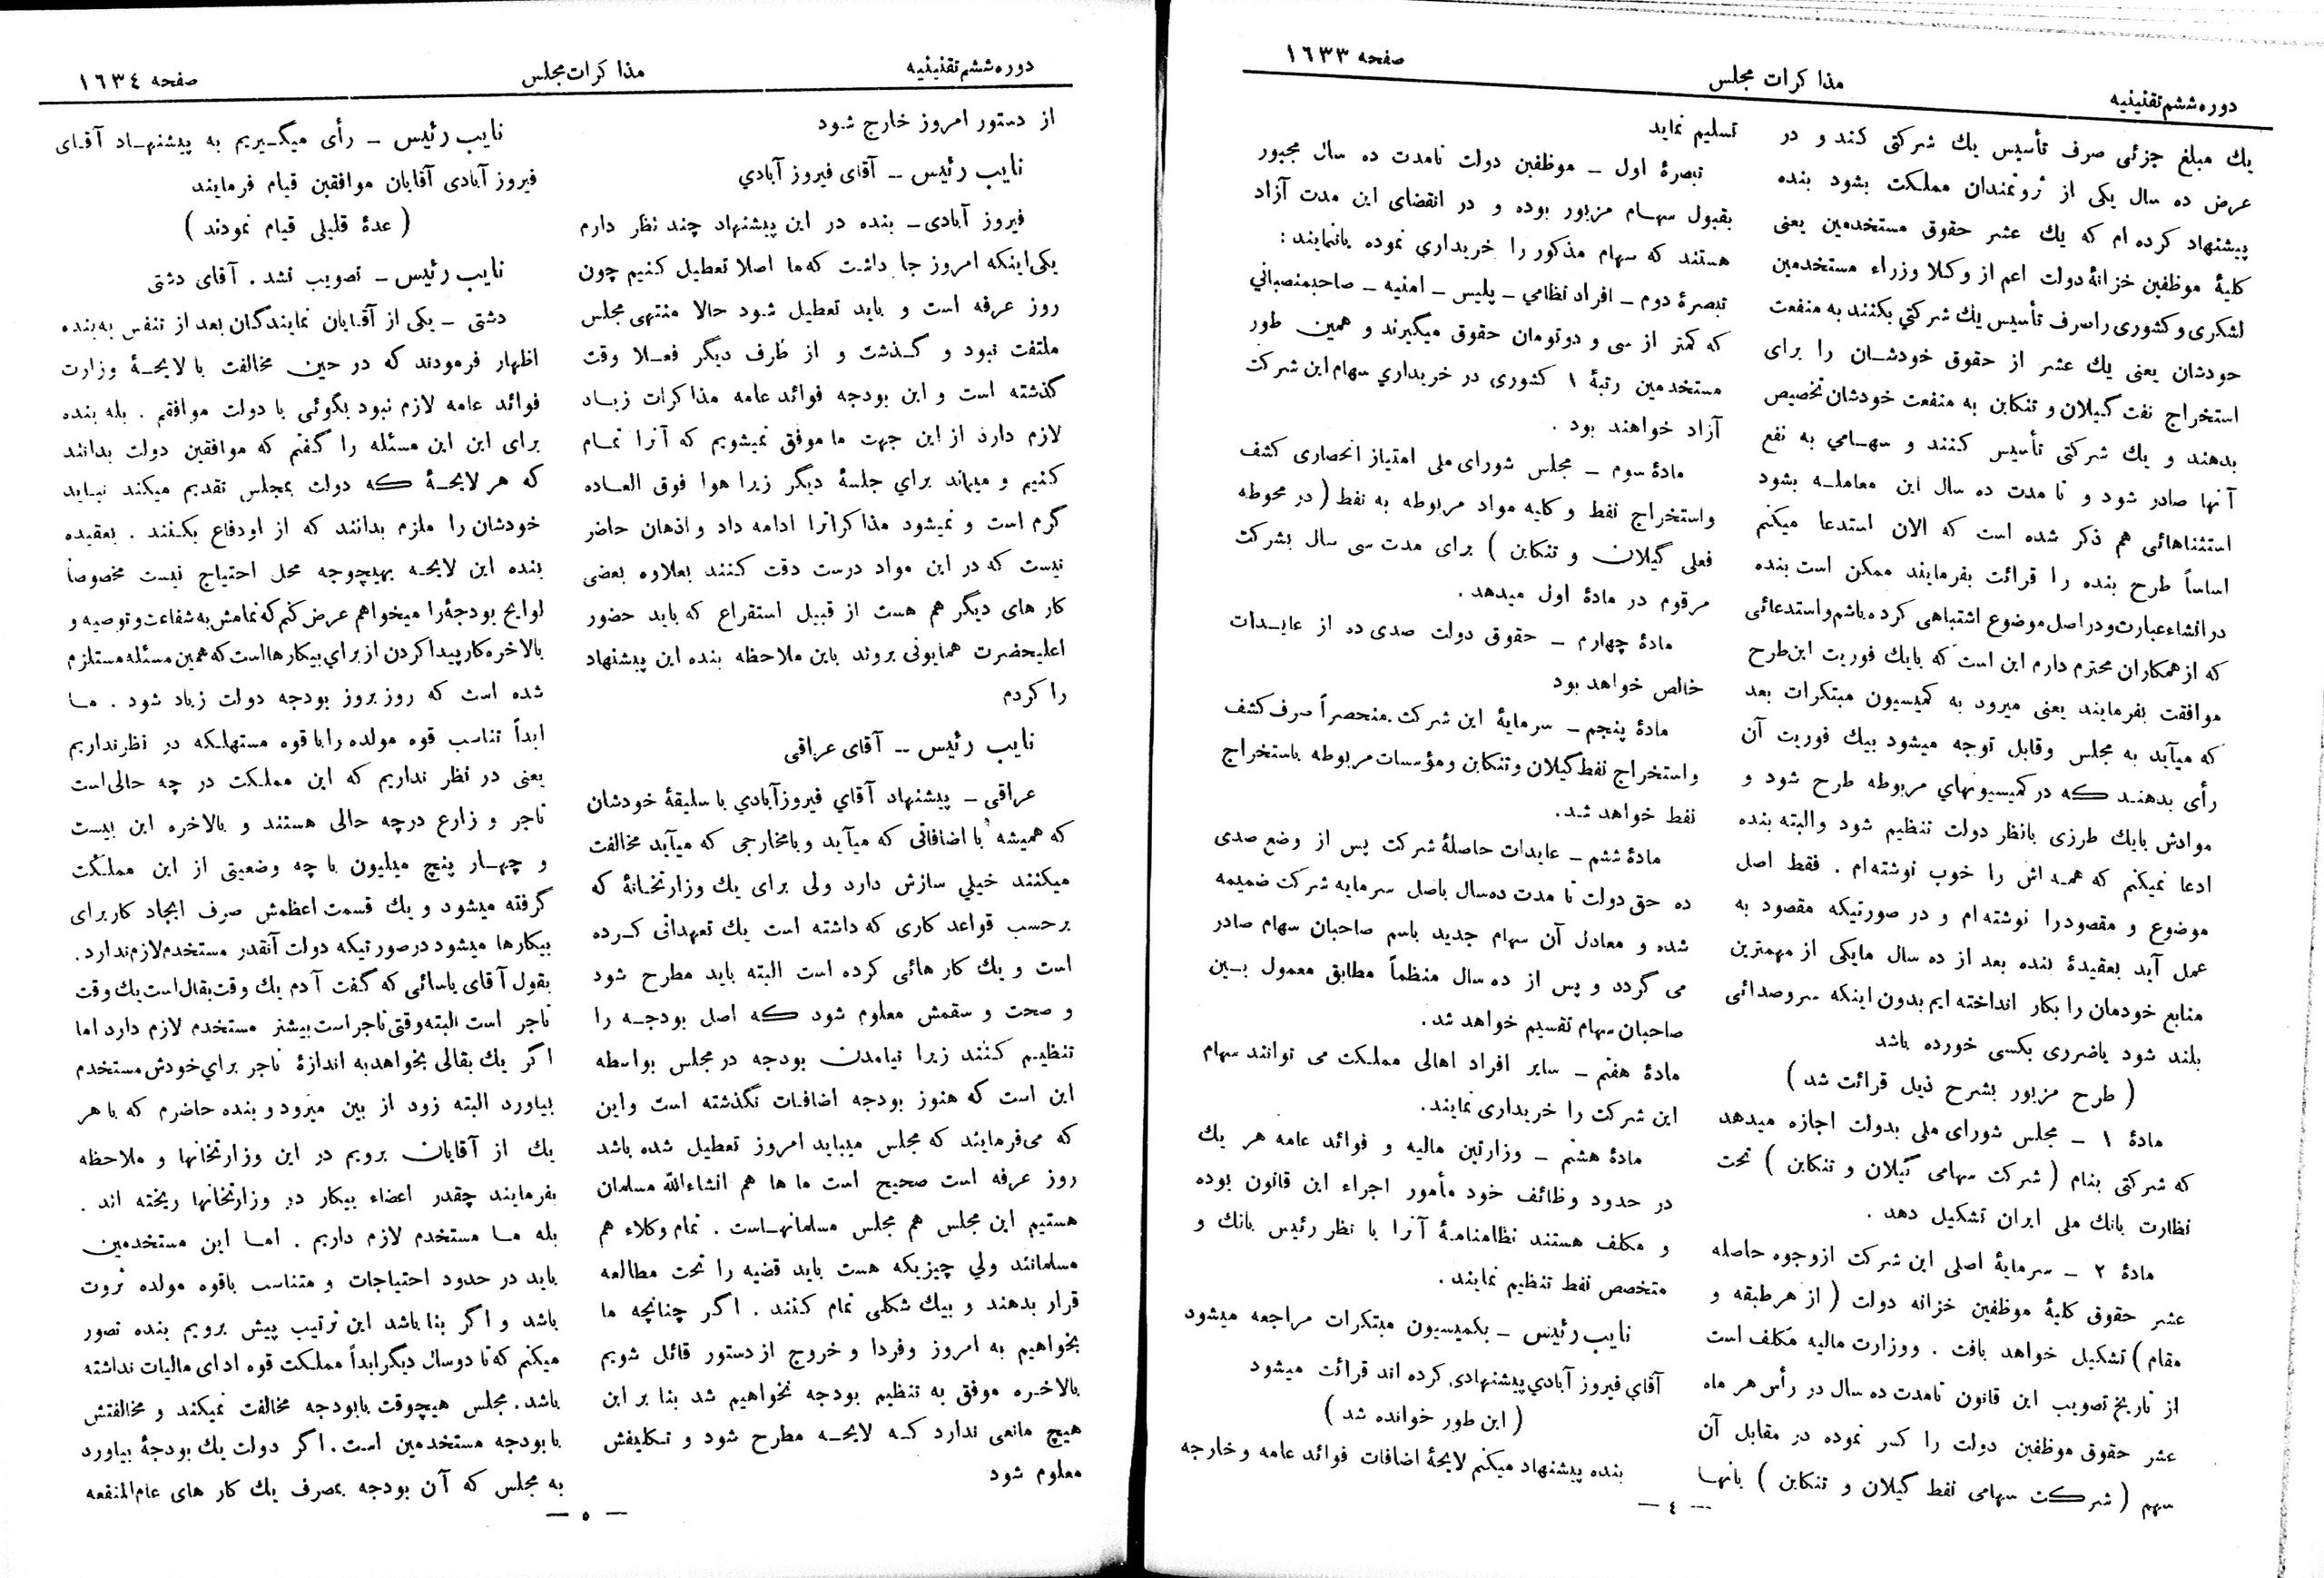 دوره ششم تقنینیه
مذاکرات مجلس
صفحه ١٦٣٣
یك مبلغ جزئی صرف تأسیس یك شرکتی کند و در
عرض ده سال یکی از ثروتمندان مملکت بشود بنده
پیشنهاد کرده ام که یك عشر حقوق مستخدمین یعنی
کلیهٔ موظفین خزانهٔ دولت اعم از وکلا وزراء مستخدمین
لشکری و کشوری را صرف تأسیس یك شرکتي بکنند به منفعت
خودشان یعنی یك عشر از حقوق خودشان را برای
استخراج نفت گیلان و تنکابن به منفعت خودشان تخصیص
بدهند و یك شرکتی تأسیس کنند و سهامي به نفع
آنها صادر شود و تا مدت ده سال این معامله بشود
استثناهائی هم ذکر شده است که الان استدعا میکنم
اساساً طرح بنده را قرائت بفرمایند ممکن است بنده
در انشاء عبارت و در اصل موضوع اشتباهی کرده باشم و استدعائی
که از همکاران محترم دارم این است که بایك فوریت این طرح
موافقت بفرمایند یعنی میرود به کمیسیون مبتکرات بعد
که میآید به مجلس و قابل توجه میشود بیك فوریت آن
رأی بدهند که در کمیسیونهاي مربوطه طرح شود و
موادش بایك طرزی بانظر دولت تنظیم شود والبته بنده
ادعا نمیکنم که همه اش را خوب نوشته ام . فقط اصل
موضوع و مقصودرا نوشته ام و در صورتیکه مقصود به
عمل آید بعقیدهٔ بنده بعد از ده سال مایکی از مهمترین
منابع خودمان را بکار انداخته ایم بدون اینکه سروصدائی
بلند شود یاضرری بکسی خورده باشد
( طرح مزبور بشرح ذیل قرائت شد )
مادهٔ ١ – مجلس شورای ملی بدولت اجازه میدهد
که شرکتی بنام ( شرکت سهامی گیلان و تنکابن ) تحت
نظارت بانك ملی ایران تشکیل دهد .
مادهٔ ٢ – سرمایهٔ اصلی این شرکت ازوجوه حاصله
عشر حقوق کلیهٔ موظفین خزانه دولت ( از هر طبقه و
مقام ) تشکیل خواهد یافت . ووزارت مالیه مکلف است
از تاریخ تصویب این قانون تامدت ده سال در رأس هر ماه
عشر حقوق موظفین دولت را کسر نموده در مقابل آن
سهم ( شرکت سهامی نفط گیلان و تنکابن ) بانها
تسلیم نماید
تبصرهٔ اول – موظفین دولت تامدت ده سال مجبور
بقبول سهام مزبور بوده و در انقضای این مدت آزاد
هستند که سهام مذکور را خریداری نموده یاننمایند :
تبصرهٔ دوم – افراد نظامي – پلیس – امنیه – صاحبمنصباني
که کمتر از سی و دوتومان حقوق میگیرند و همین طور
مستخدمین رتبهٔ ١ کشوری در خریداري سهام این شرکت
آزاد خواهند بود .
مادهٔ سوم – مجلس شورای ملی امتیاز انحصاری کشف
واستخراج نفط و کلیه مواد مربوطه به نفط ( در محوطه
فعلی گیلان و تنکابن ) برای مدت سی سال بشرکت
مرقوم در مادهٔ اول میدهد .
مادهٔ چهارم – حقوق دولت صدی ده از عایدات
خالص خواهد بود
مادهٔ پنجم – سرمایهٔ این شرکت منحصراً صرف کشف
و استخراج نفط گیلان و تنکابن و مؤسسات مربوطه باستخراج
نفط خواهد شد.
مادهٔ ششم – عایدات حاصلهٔ شرکت پس از وضع صدی
ده حق دولت تا مدت ده سال باصل سرمایه شرکت ضمیمه
شده و معادل آن سهام جدید باسم صاحبان سهام صادر
می گردد و پس از ده سال منظماً مطابق معمول بین
صاحبان سهام تقسیم خواهد شد.
مادهٔ هفتم – سایر افراد اهالی مملکت می توانند سهام
این شرکت را خریداری نمایند.
مادهٔ هشتم – وزارتین مالیه و فوائد عامه هر یك
در حدود وظائف خود مأمور اجراء این قانون بوده
و مکلف هستند نظامنامهٔ آنرا با نظر رئیس بانك و
متخصص نفط تنظیم نمایند .
نایب رئیس – بکمیسیون مبتکرات مراجعه میشود
آقاي فیروز آبادي پیشنهادی کرده اند قرائت میشود
( این طور خوانده شد )
بنده پیشنهاد میکنم لایحهٔ اضافات فوائد عامه و خارجه
— ٤ —
دوره ششم تقنینیه
مذاکرات مجلس
صفحه ١٦٣٤
از دستور امروز خارج شود
نایب رئیس – آقای فیروز آبادي
فیروز آبادی – بنده در این پیشنهاد چند نظر دارم
یکی اینکه امروز جا داشت که ما اصلا تعطیل کنیم چون
روز عرفه است و باید تعطیل شود حالا منتهی مجلس
ملتفت نبود و گذشت و از طرف دیگر فعلا وقت
گذشته است و این بودجه فوائد عامه مذاکرات زیاد
لازم دارد از این جهت ما موفق نمیشویم که آنرا تمام
کنیم و میماند براي جلسهٔ دیگر زیرا هوا فوق العاده
گرم است و نمیشود مذاکراترا ادامه داد و اذهان حاضر
نیست که در این مواد درست دقت کنند بعلاوه بعضی
کار های دیگر هم هست از قبیل استقراع که باید حضور
اعلیحضرت همایونی بروند باین ملاحظه بنده این پیشنهاد
را کردم
نایب رئیس – آقای عراقی
عراقی – پیشنهاد آقاي فیروزآبادي با سلیقهٔ خودشان
که همیشه با اضافاتی که میآید و بامخارجی که میآید مخالفت
میکنند خیلي سازش دارد ولی برای یك وزارتخانهٔ که
برحسب قواعد کاری که داشته است یك تعهداتی کرده
است و یك کار هائی کرده است البته باید مطرح شود
و صحت و سقمش معلوم شود که اصل بودجه را
تنظیم کنند زیرا نیامدن بودجه در مجلس بواسطه
این است که هنوز بودجه اضافات نگذشته است واین
که می فرمایند که مجلس میباید امروز تعطیل شده باشد
روز عرفه است صحیح است ما ها هم انشاءالله مسلمان
هستیم این مجلس هم مجلس مسلمانهاست . تمام وکلاء هم
مسلمانند ولي چیزیکه هست باید قضیه را تحت مطالعه
قرار بدهند و بیك شکلی تمام کنند . اگر چنانچه ما
بخواهیم به امروز و فردا و خروج از دستور قائل شویم
بالاخره موفق به تنظیم بودجه نخواهیم شد بنا بر این
هیچ مانعی ندارد که لایحه مطرح شود و تکلیفش
معلوم شود
نایب رئیس – رأی میگیریم به پیشنهاد آقای
فیروز آبادی آقایان موافقین قیام فرمایند
( عدهٔ قلیلی قیام نمودند )
نایب رئیس – تصویب نشد . آقای دشتی
دشتی – یکی از آقایان نمایندگان بعد از تنفس به بنده
اظهار فرمودند که در حین مخالفت با لایحهٔ وزارت
فوائد عامه لازم نبود بگوئی با دولت موافقم . بله بنده
برای این این مسئله را گفتم که موافقین دولت بدانند
که هر لایحهٔ که دولت بمجلس تقدیم میکند نباید
خودشان را ملزم بدانند که از او دفاع بکنند . بعقیده
بنده این لایحه بهیچوجه محل احتیاج نیست مخصوصاً
لوایح بودجهٔ را میخواهم عرض کنم که تمامش به شفاعت و توصیه و
بالاخره کار پیدا کردن از براي بیکارها است که همین مسئله مستلزم
شده است که روز بروز بودجه دولت زیاد شود . ما
ابداً تناسب قوه مولده را با قوه مستهلکه در نظر نداریم
یعنی در نظر نداریم که این مملکت در چه حالی است
تاجر و زارع درچه حالی هستند و بالاخره این بیست
و چهار پنج میلیون با چه وضعیتی از این مملکت
گرفته میشود و یك قسمت اعظمش صرف ایجاد کار برای
بیکارها میشود در صورتیکه دولت آنقدر مستخدم لازم ندارد.
بقول آقای یاسائی که گفت آدم یك وقت بقال است یك وقت
تاجر است البته وقتی تاجر است بیشتر مستخدم لازم دارد اما
اگر یك بقالی بخواهد به اندازهٔ تاجر براي خودش مستخدم
بیاورد البته زود از بین میرود و بنده حاضرم که با هر
یك از آقایان برویم در این وزارتخانها و ملاحظه
بفرمایند چقدر اعضاء بیکار در وزارتخانها ریخته اند .
بله ما مستخدم لازم داریم . اما این مستخدمین
باید در حدود احتیاجات و متناسب باقوه مولده ثروت
باشد و اگر بنا باشد این ترتیب پیش برویم بنده تصور
میکنم که تا دو سال دیگر ابداً مملکت قوه ادای مالیات نداشته
باشد. مجلس هیچوقت بابودجه مخالفت نمیکند و مخالفتش
با بودجه مستخدمین است. اگر دولت یك بودجهٔ بیاورد
به مجلس که آن بودجه بمصرف یك کار های عام المنفعه
— ٥ —